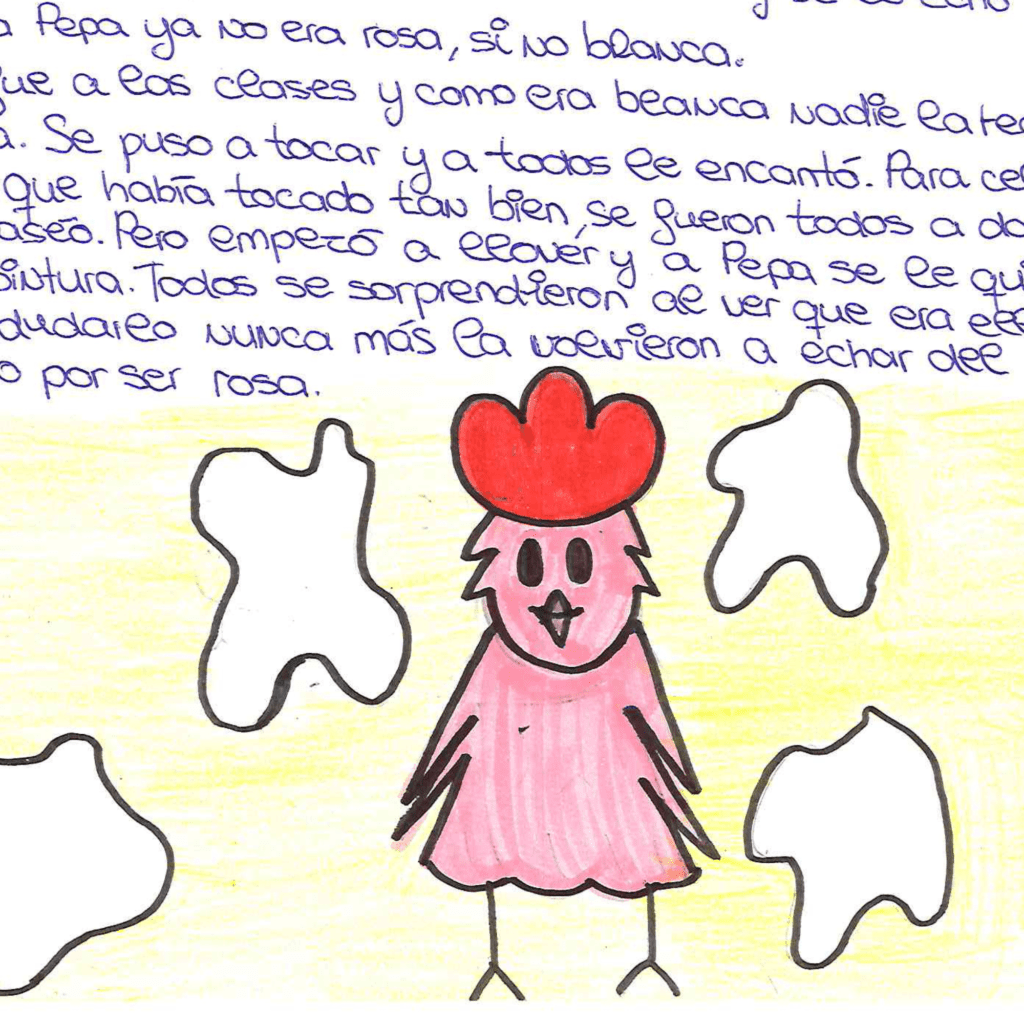 Pepa ya no era rosa, si no blanca.
que a las clases y como era blanca nadie la
. Se puso a tocar y a todos le encantó. Para
que había tocado tan bien, se fueron todos a
. Pero empezó a llover y a Pepa se le
pintura. Todos se sorprendieron al ver que era
dudarlo nunca más la volvieron a echar del
por ser rosa.